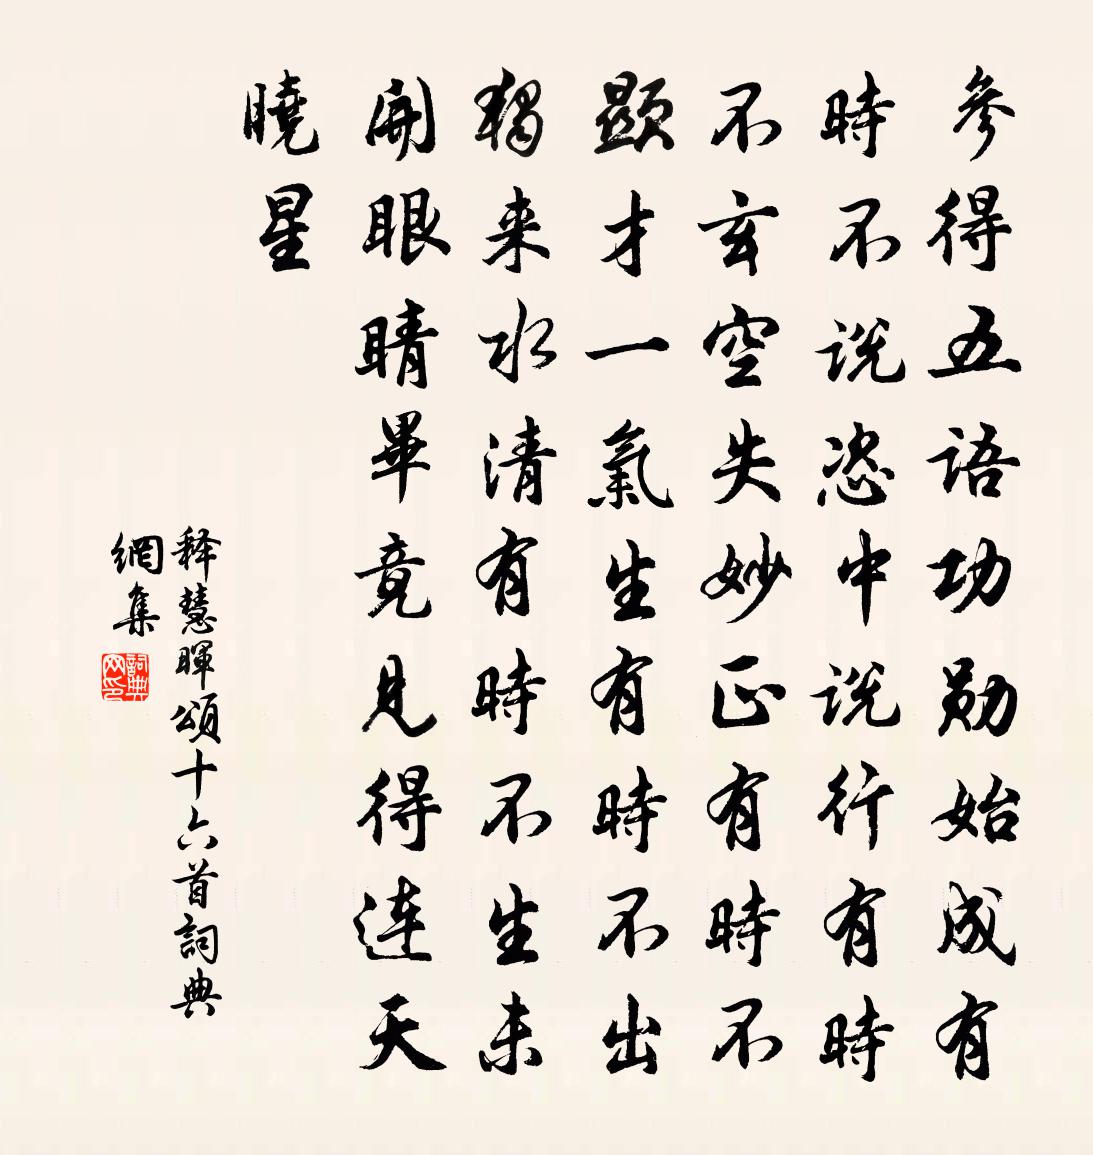 參得五語功勋始成有
時不説恣中説行有時
不玄空失妙正有時不
顯才一氣生有時不出
獨来水清有時不生未
開眼睛畢竟見得连天
曉星
释慧暉頌十六首詞典
網集
詞典网印